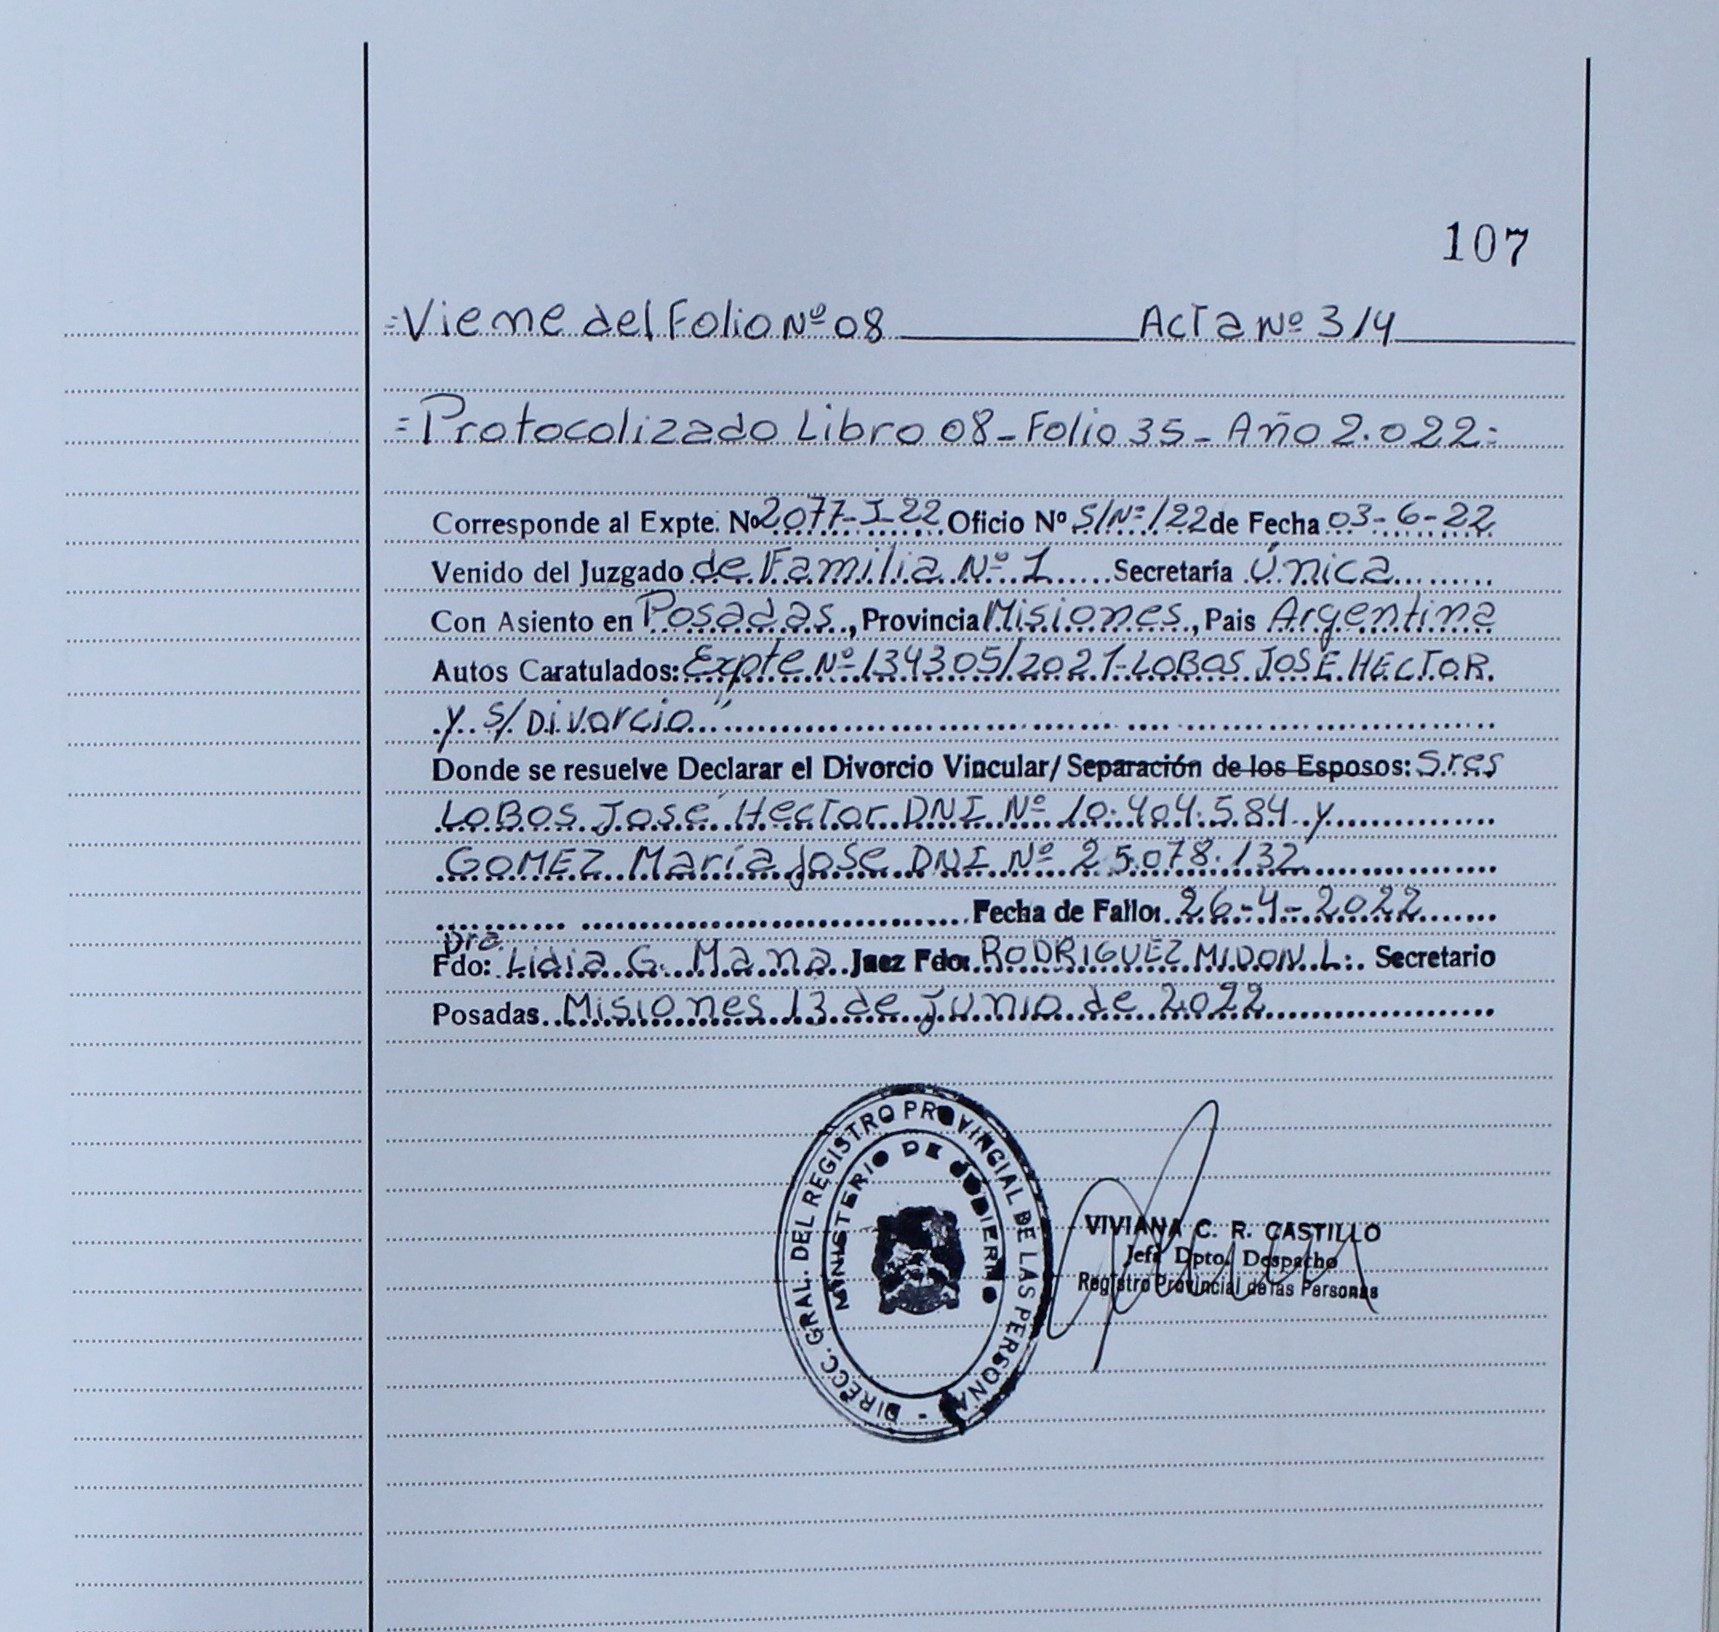 107
=Viene del Folio Nº 08 Acta Nº 314
=Protocolizado Libro 08 - Folio 35 - Año 2.022=
Corresponde al Expte. Nº 2077-J-22 Oficio Nº S/Nº/22 de Fecha 03-6-22
Venido del Juzgado de Familia Nº 1 Secretaría Única
Con Asiento en Posadas, Provincia Misiones, Pais Argentina
Autos Caratulados: Expte Nº 134305/2021-LOBOS JOSE HECTOR
y s/ Divorcio"
Donde se resuelve Declarar el Divorcio Vincular/ Separación de los Esposos: Sres
LOBOS José Hector DNI Nº 10.404.584 y
GOMEZ María José DNI Nº 25.078.132
Fecha de Fallo: 26-4-2022
Dra.
Fdo: Lidia G. Mana Juez Fdo: RODRIGUEZ MIDON L. Secretario
Posadas Misiones 13 de Junio de 2022
DIRECC. GRAL. DEL REGISTRO PROVINCIAL DE LAS PERSONAS -
MINISTERIO DE GOBIERNO
VIVIANA C. R. CASTILLO
Jefa Dpto. Despacho
Registro Provincial de las Personas